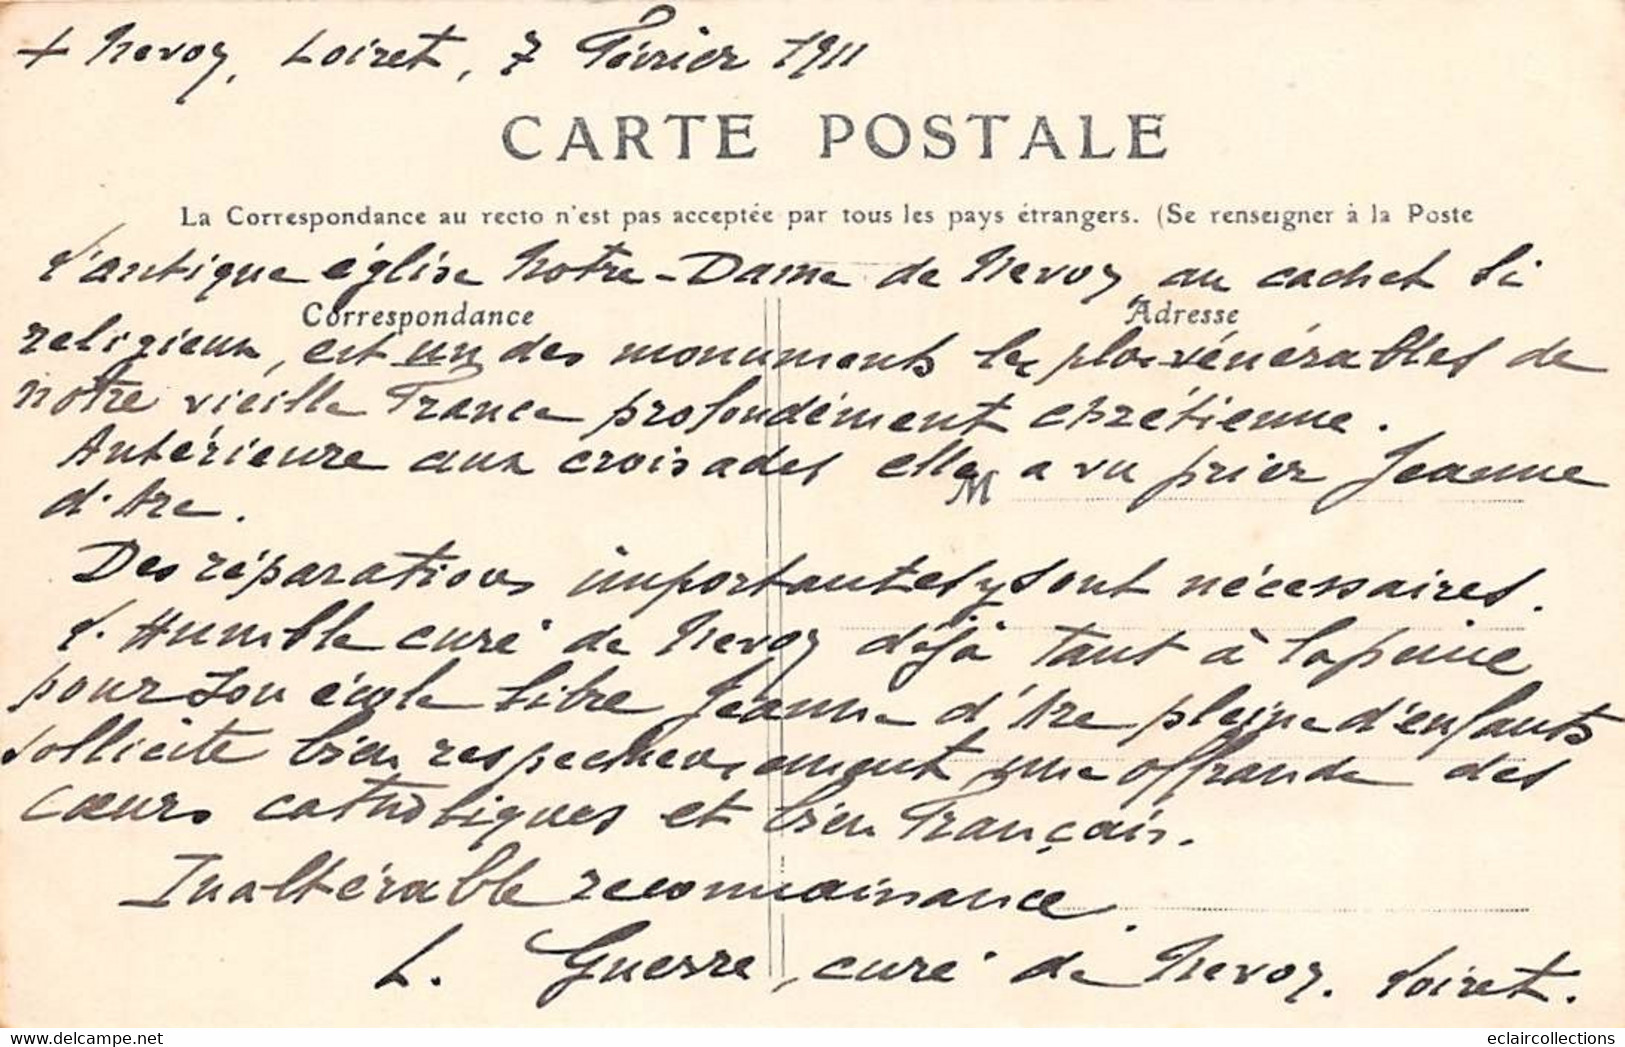 + Nevoy, Loiret, 7 Février 1911
CARTE POSTALE
La Correspondance au recto n'est pas acceptée par tous les pays étrangers. (Se renseigner à la Poste
L'antique église Notre-Dame de Nevoy, au cachet si
Correspondance Adresse
religieux, est un des monuments les plus vénérables de
notre vieille France profondément chrétienne.
Antérieure aux croisades elle a vu prier Jeanne
M
d'Arc.
Des réparations importantes y sont nécessaires.
L'Humble curé de Nevoy déjà tant à la peine
pour son école libre Jeanne d'Arc pleine d'enfants
sollicite bien respectueusement une offrande des
cœurs catholiques et bien Français.
Inaltérable reconnaissance.
L. Guerre, curé de Nevoy. Loiret.
eclaircollections
www.delcampe.net